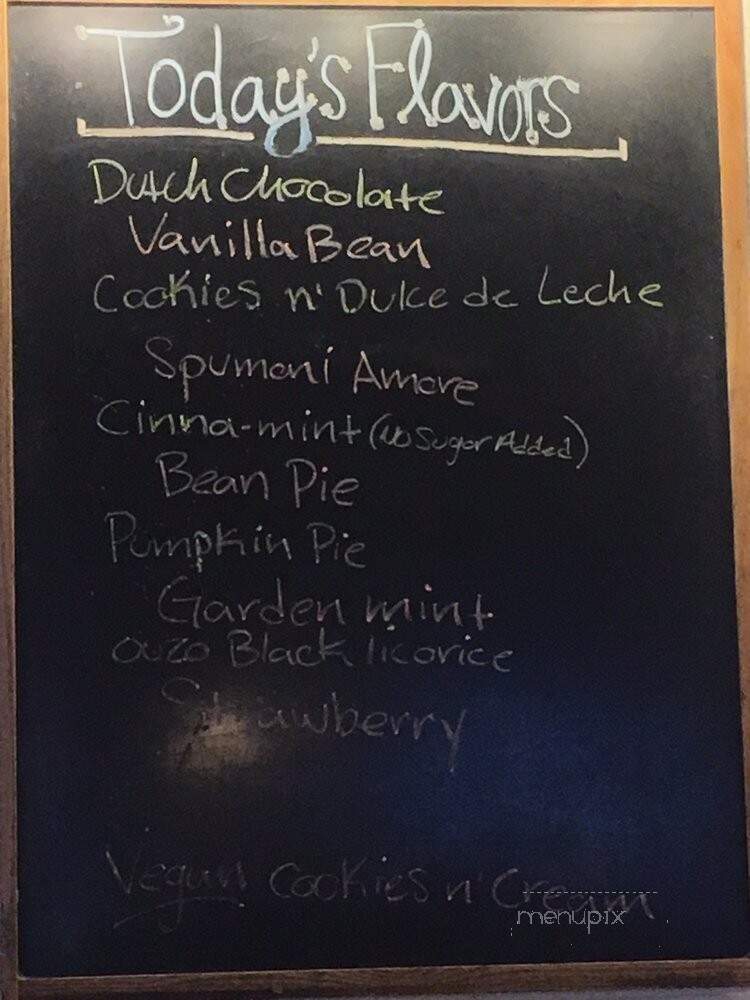 Today's Flavors
Dutch Chocolate
Vanilla Bean
Cookies n' Dulce de Leche
Spumoni Amore
Cinna-mint (No Sugar Added)
Bean Pie
Pumpkin Pie
Garden mint
ouzo Black licorice
Strawberry
Vegan Cookies n' Cream
menupix